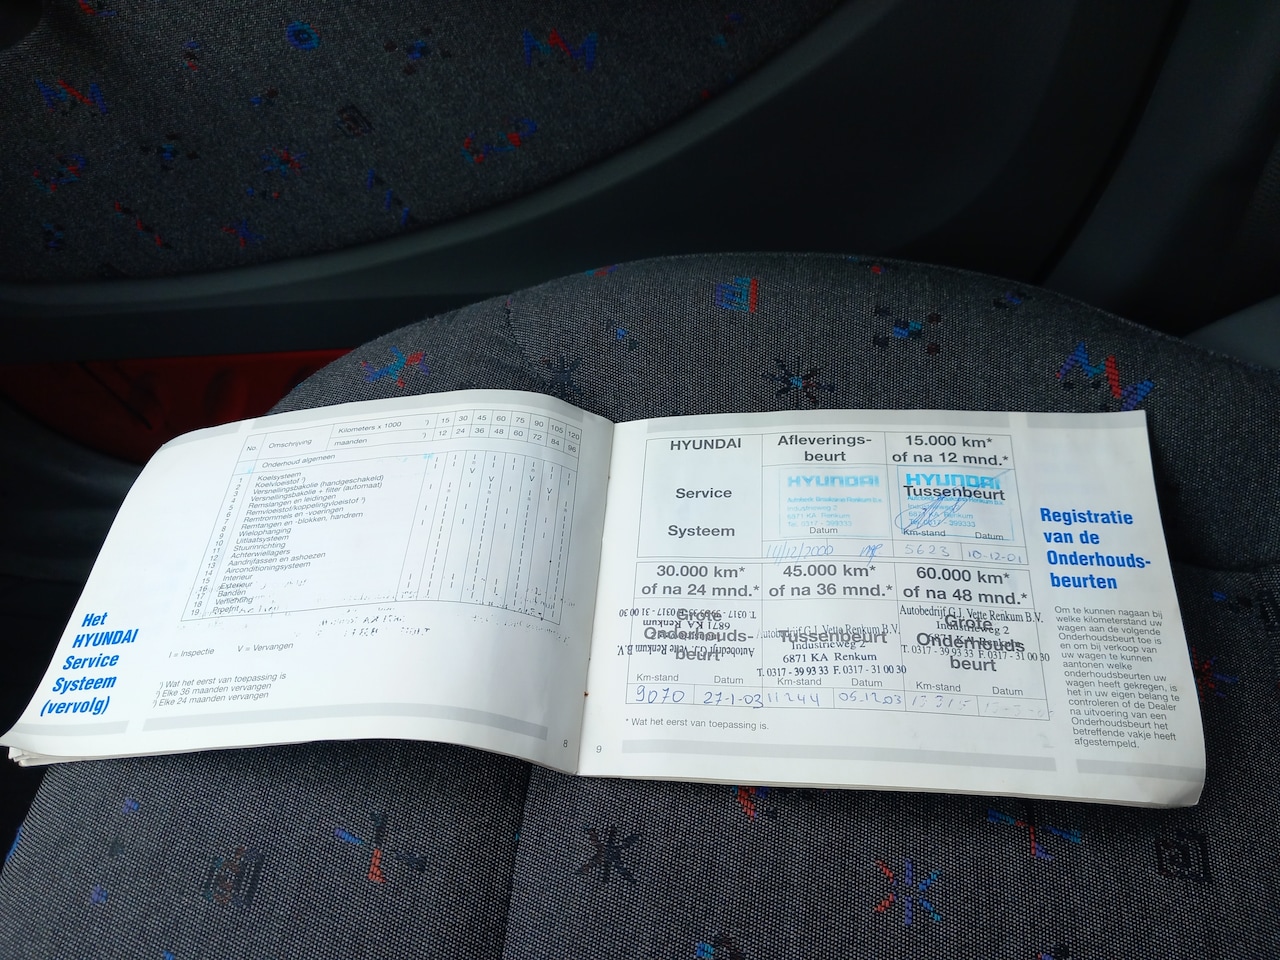 Het
HYUNDAI
Service
Systeem
(vervolg)
No. Omschrijving Kilometers x 1000 *) 15 30 45 60 75 90 105 120
maanden *) 12 24 36 48 60 72 84 96
Onderhoud algemeen
1 Koelsysteem
2 Koelvloeistof
3 Versnellingsbakolie (handgeschakeld)
4 Versnellingsbakolie + filter (automaat)
5 Remslangen en leidingen
6 Remvloeistof/koppelingvloeistof
7 Remtrommels en -voeringen
8 Remtangen en -blokken, handrem
9 Wielophanging
10 Uitlaatsysteem
11 Stuurinrichting
12 Achterwiellagers
13 Aandrijfassen en ashoezen
14 Airconditioningsysteem
15 Interieur
16 Exterieur
17 Banden
18 Verlichting
19 Proefrit
I = Inspectie V = Vervangen
*) Wat het eerst van toepassing is
²) Elke 36 maanden vervangen
³) Elke 24 maanden vervangen
8
HYUNDAI
Service
Systeem
Afleverings-
beurt
HYUNDAI
Industrieweg 2
6871 KA Renkum
Tel. 0317 - 399333
Datum
15.000 km*
of na 12 mnd.*
HYUNDAI
Tussenbeurt
Km-stand Datum
5623 10-12-01
30.000 km*
of na 24 mnd.*
Grote
Onderhouds-
beurt
Autobedrijf G.J. Vette Renkum B.V.
6871 KA Renkum
Km-stand Datum
9070 27-1-03
45.000 km*
of na 36 mnd.*
Tussenbeurt
Autobedrijf G.J. Vette Renkum B.V.
Industrieweg 2
6871 KA Renkum
T. 0317 - 39 93 33 F. 0317 - 31 00 30
Km-stand Datum
11244 05.12.03
60.000 km*
of na 48 mnd.*
Grote
Onderhouds
beurt
Autobedrijf G.J. Vette Renkum B.V.
Industrieweg 2
6871 KA Renkum
T. 0317 - 39 93 33 F. 0317 - 31 00 30
Km-stand Datum
* Wat het eerst van toepassing is.
9
Registratie
van de
Onderhouds-
beurten
Om te kunnen nagaan bij
welke kilometerstand uw
wagen aan de volgende
Onderhoudsbeurt toe is
en om bij verkoop van
uw wagen te kunnen
aantonen welke
onderhoudsbeurten uw
wagen heeft gekregen, is
het in uw eigen belang te
controleren of de Dealer
na uitvoering van een
Onderhoudsbeurt het
betreffende vakje heeft
afgestempeld.